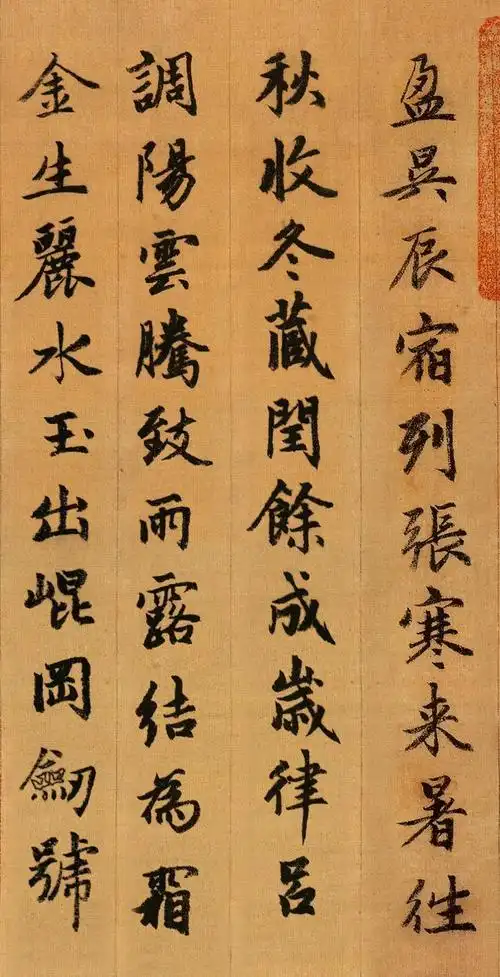 盈昃辰宿列張寒来暑往
秋收冬藏閏餘成歲律呂
調陽雲騰致雨露結為霜
金生麗水玉出崐岡劒號